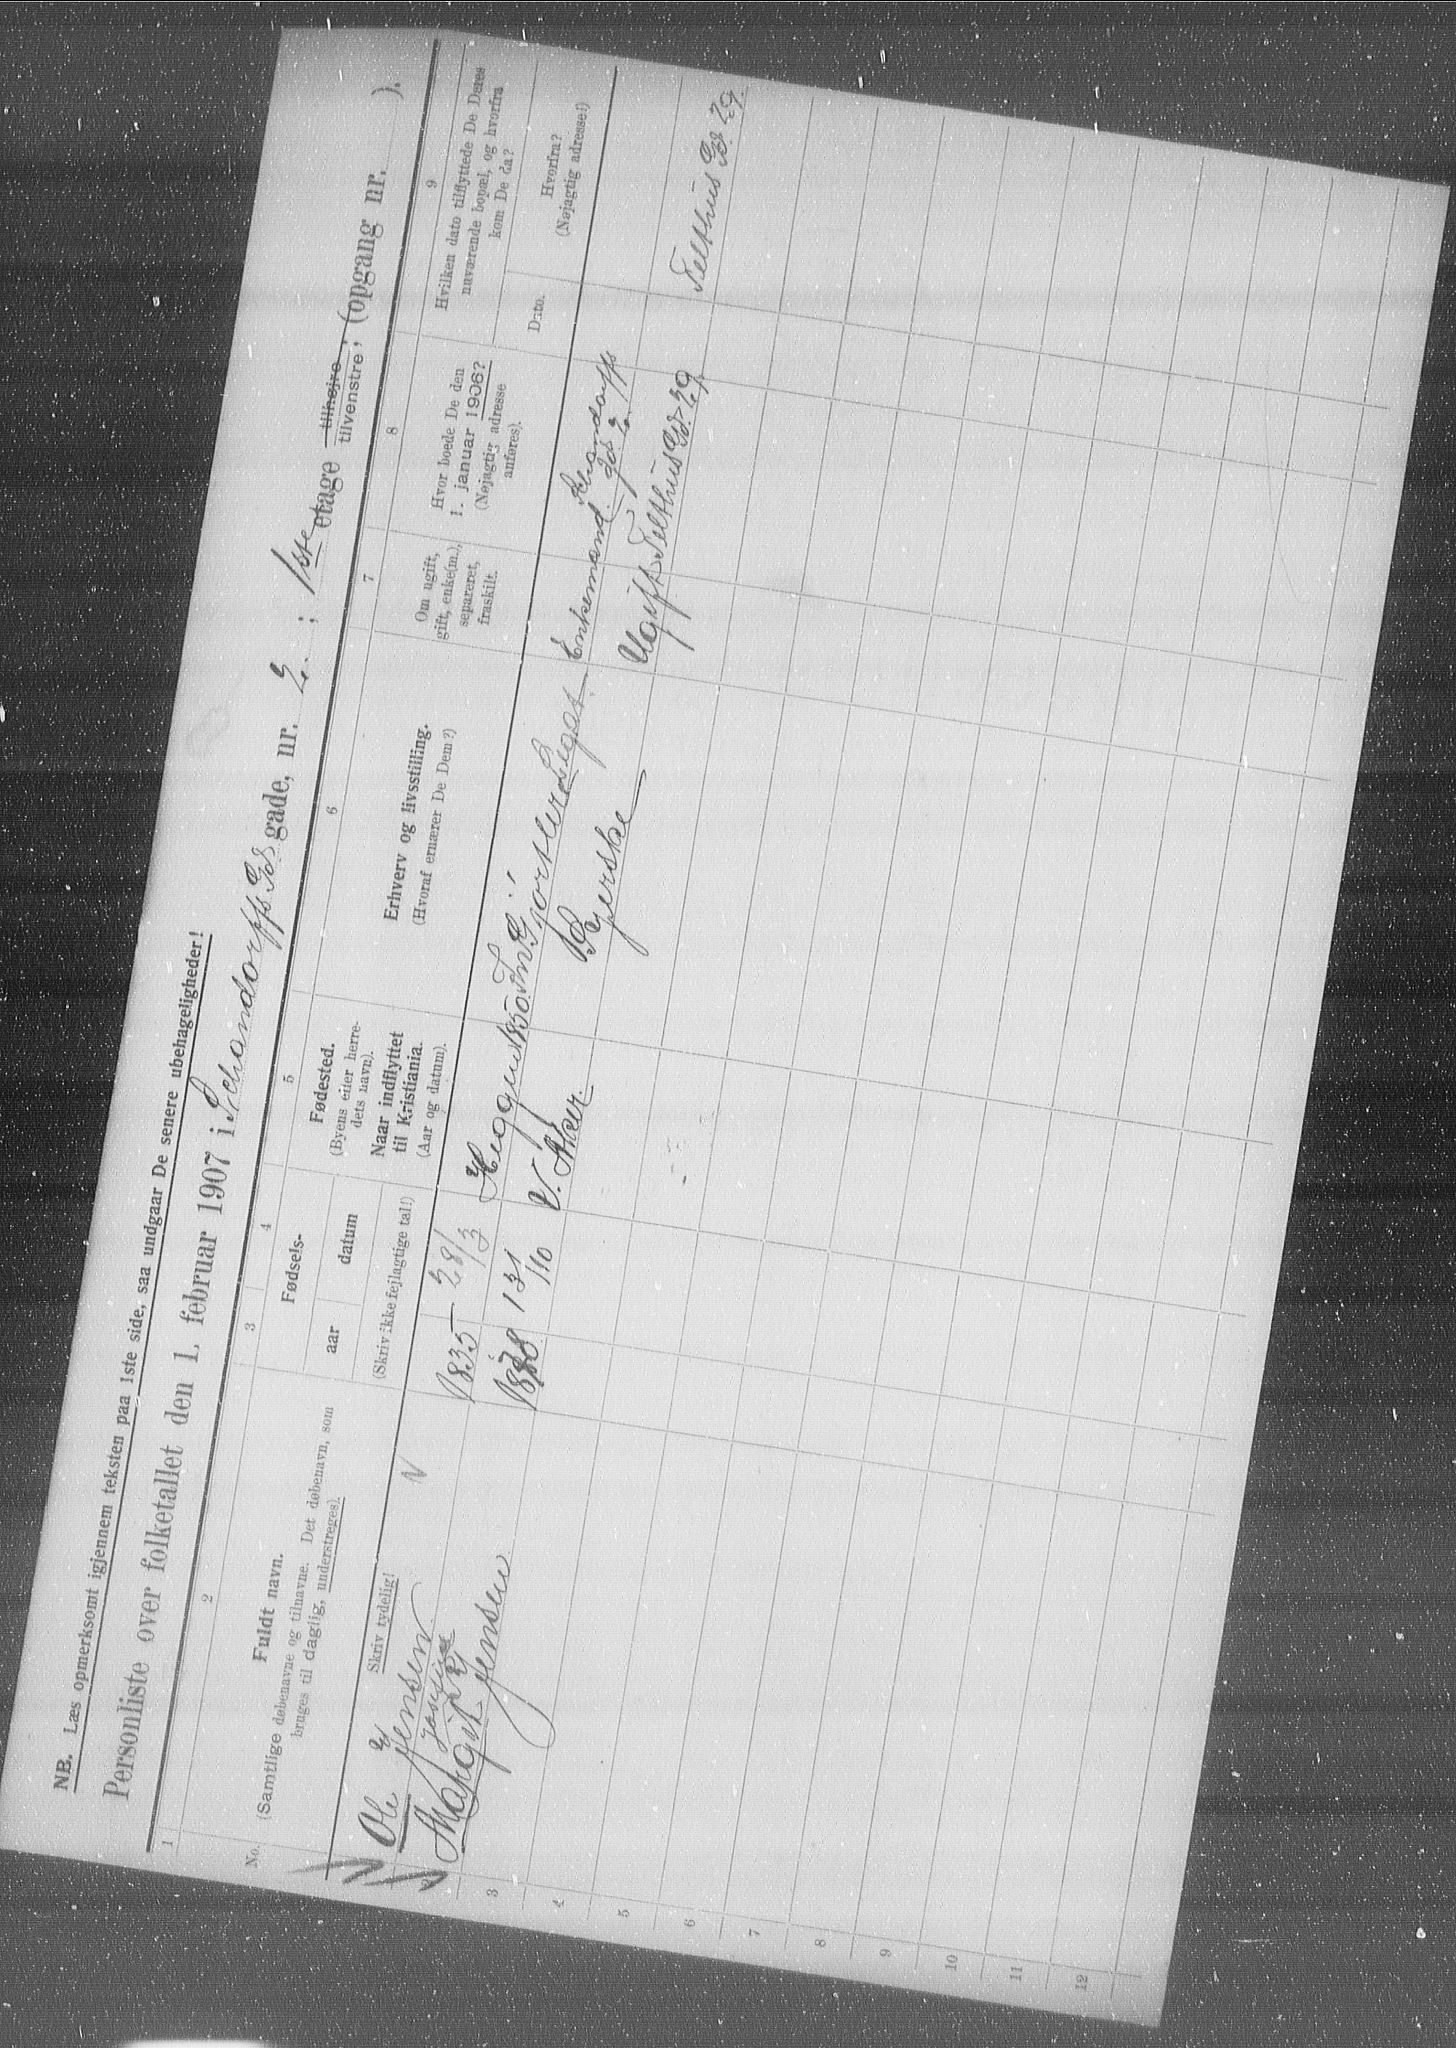 NB. Læs opmerksomt igjennem teksten paa 1ste side, saa undgaar De senere ubehageligheder!
Personliste over folketallet den 1. februar 1907 i Schandorffs Gd. gade, nr. 2. ; 1ste etage tilhøjre, tilvenstre, (opgang nr. ).
1 2 3 4 5 6 7 8 9
No.
Fuldt navn.
(Samtlige døbenavne og tilnavne. Det døbenavn, som
bruges til daglig, understreges).
Skriv tydelig!
Fødsels-
aar datum
(Skriv ikke fejlagtige tal!)
Fødested.
(Byens eller herre-
dets navn).
Naar indflyttet
til Kristiania.
(Aar og datum).
Erhverv og livsstilling.
(Hvoraf ernærer De Dem?)
Om ugift,
gift, enke(m.),
separeret,
fraskilt.
Hvor boede De den
1. januar 1906?
(Nøjagtig adresse
anføres).
Hvilken dato tilflyttede De Deres
nuværende bopæl, og hvorfra
kom De da?
Dato.
Hvorfra?
(Nøjagtig adresse!)
Ole Jensen N 1835 28/3 Enkemand. Schandorffs gd. 2.
Margit Jensen 1878 13/10 V. Aker Syerske Ugift Telthus Gd. 29 Telthus Gd. 29.
3
4
5
6
7
8
9
10
11
12